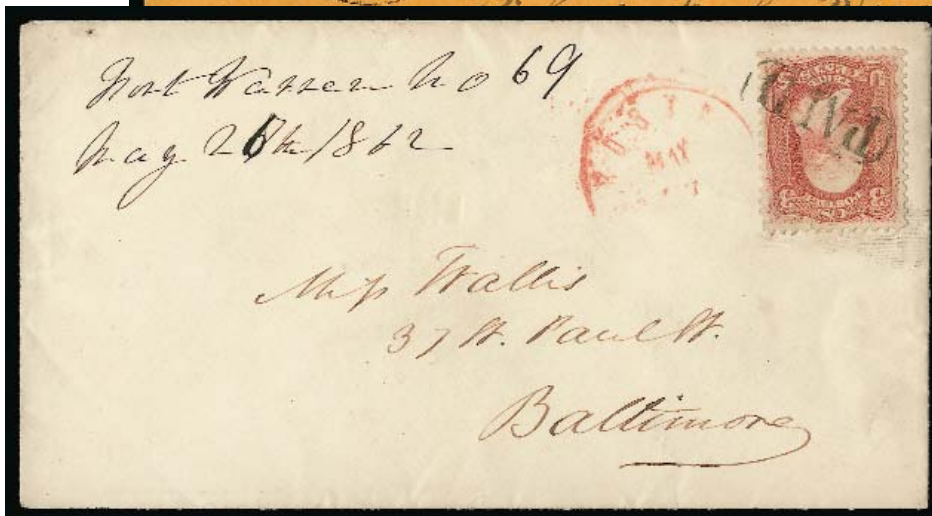 Fort Warren No 69
May 26th 1862
MAY
PAID
Miss Wallis
37 St. Paul St.
Baltimore